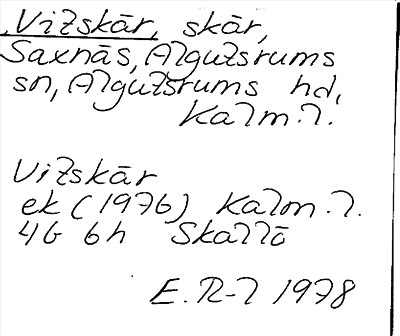 Vitskär, skär,
Saxnäs, Algutsrums
sn, Algutsrums hd,
Kalm. l.
Vitskär
ek (1976) Kalm. l.
4G 6h Skallö
E. R-l 1978